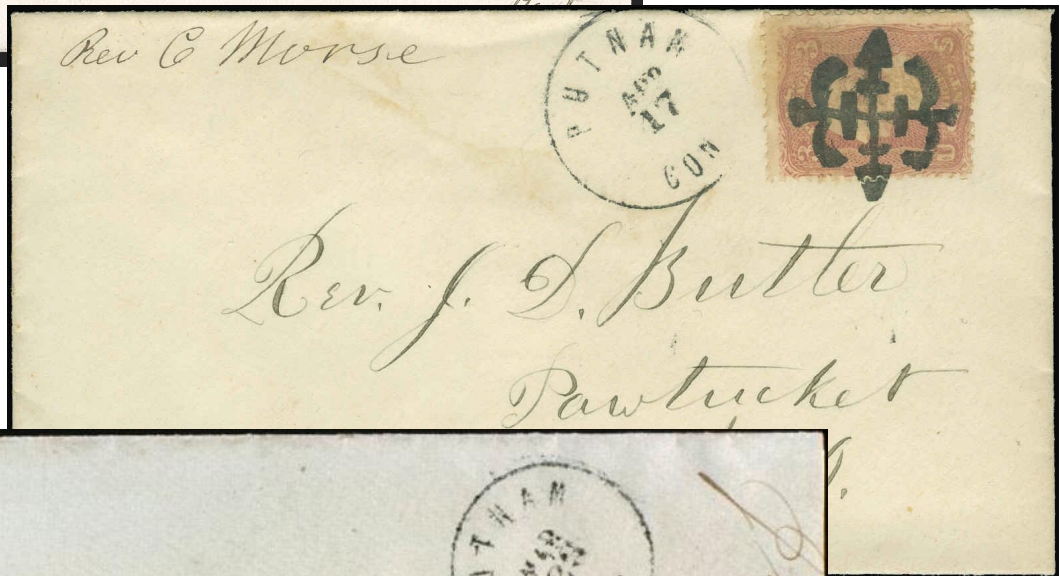 Rev C Morse
PUTNAM
APR
17
CON
Rev. J. D. Butler
Pawtucket
TNAM
MAR